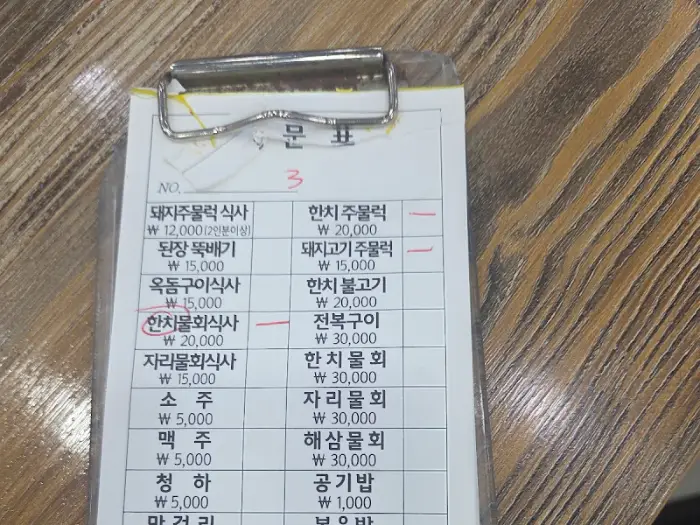 문 표
NO. 3
돼지주물럭 식사
₩ 12,000(2인분이상)
한치 주물럭
₩ 20,000
된장 뚝배기
₩ 15,000
돼지고기 주물럭
₩ 15,000
옥돔구이식사
₩ 15,000
한치 불고기
₩ 20,000
한치물회식사
₩ 20,000
전복구이
₩ 30,000
자리물회식사
₩ 15,000
한치물회
₩ 30,000
소 주
₩ 5,000
자리물회
₩ 30,000
맥 주
₩ 5,000
해삼물회
₩ 30,000
청 하
₩ 5,000
공기밥
₩ 1,000
막걸리
볶음밥